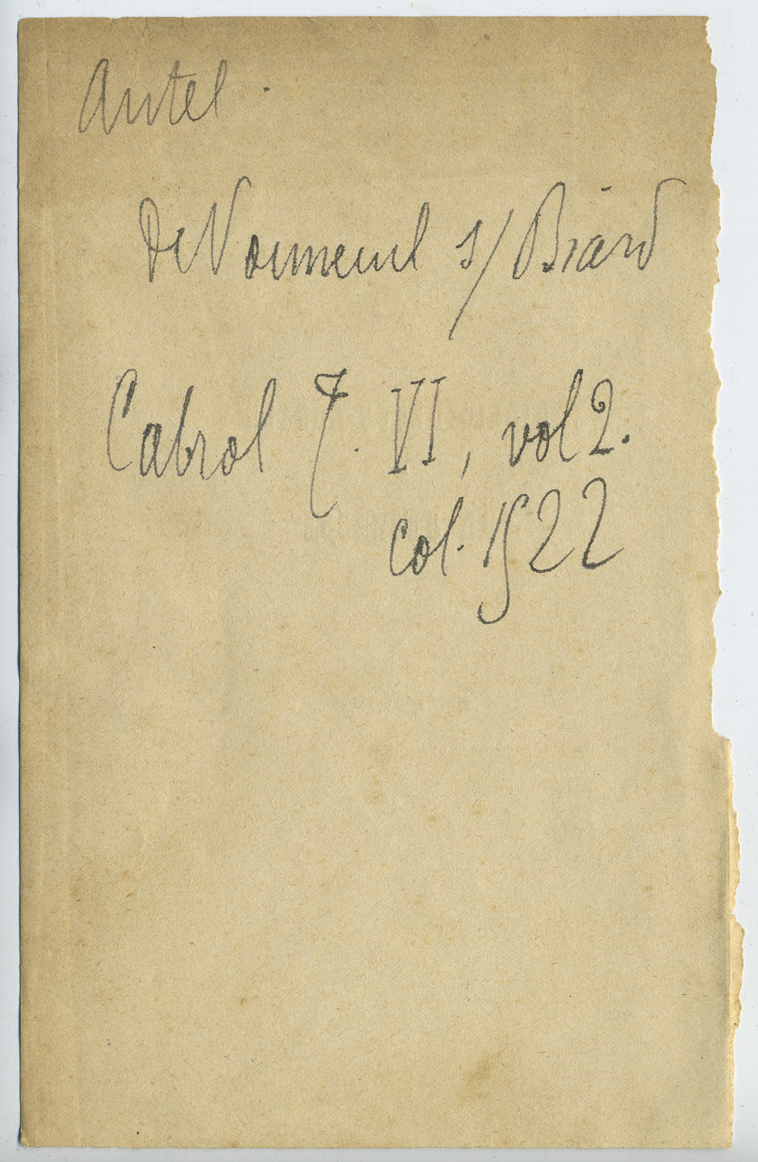 Autel.
De Vouneuil s/ Biard
Cabrol T. VI, vol 2.
col. 1522